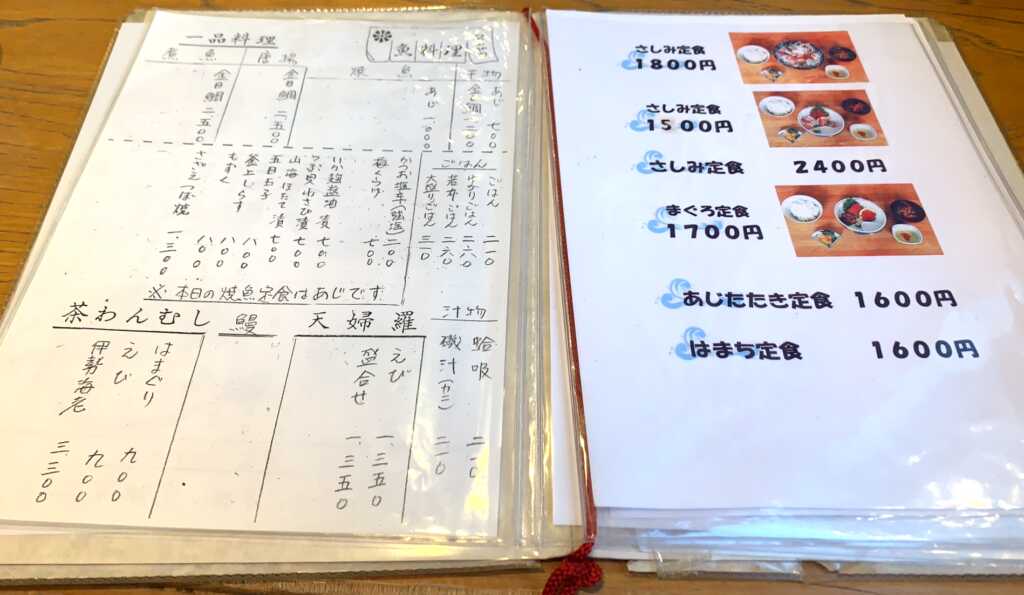 一品料理
魚料理
干物
あじ 七〇〇
金目鯛 一、二〇〇
焼魚
あじ 一、〇〇〇
唐揚
金目鯛 二、五〇〇
煮魚
金目鯛 二、五〇〇
ごはん
ごはん 二一〇
わかりごはん 二六〇
大盛りごはん 三一〇
かつお塩辛 二〇〇
梅くらげ 七〇〇
いか麹盆油漬 七〇〇
つぶ貝わさび漬 七〇〇
山海ほたて漬 七〇〇
五目玉子 七〇〇
釜上しらす 八〇〇
もずく 八〇〇
さざえつぼ焼 一、三〇〇
※本日の焼魚定食はあじです
汁物
蛤吸 二一〇
磯汁(カニ) 二一〇
天婦羅
えび 一、三五〇
盛合せ 一、三五〇
鰻
茶わんむし
はまぐり 九〇〇
えび 九〇〇
伊勢海老 三、三〇〇
さしみ定食
1800円
さしみ定食
1500円
さしみ定食 2400円
まぐろ定食
1700円
あじたたき定食 1600円
はまち定食 1600円